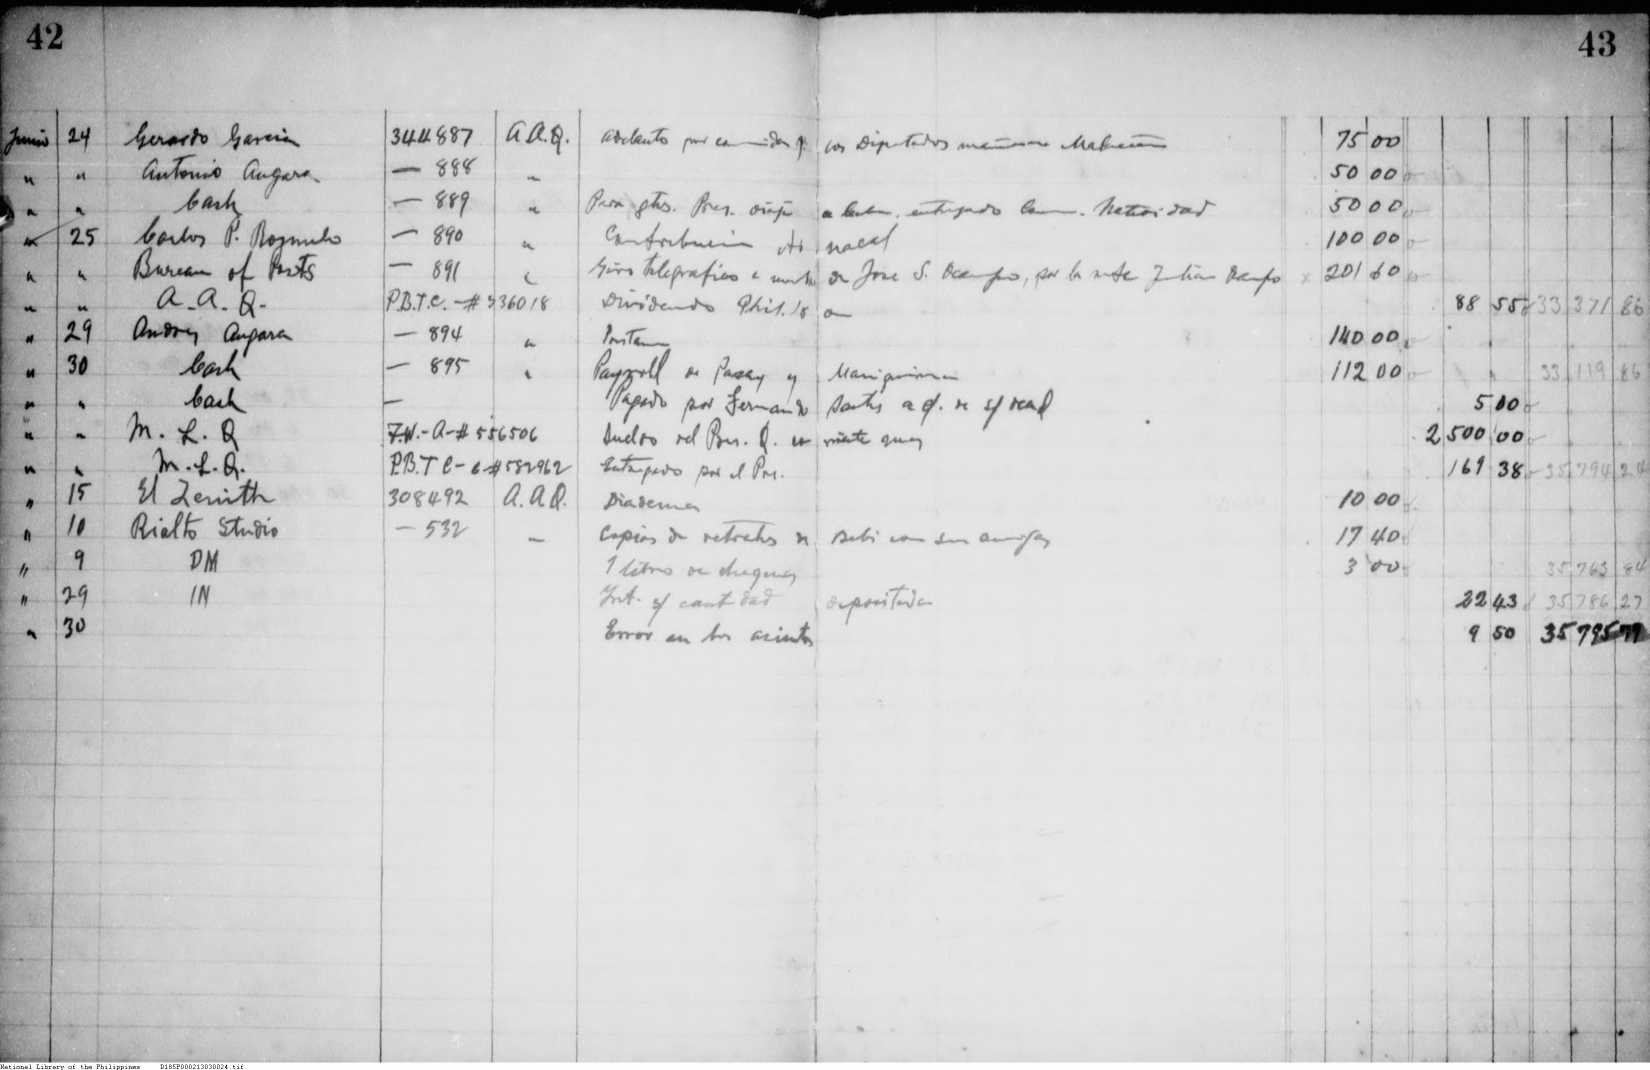 42
43
Junio 24 Gerardo Garcia 344887 A.A.Q. adelanto por comidas los Diputados Malacañan 75 00
" " Antonio Angara — 888 " 50 00
" " Cash — 889 " Para gtos. Pres. viaje a entregado Natividad 50 00
" 25 Carlos P. Romulo — 890 " Contribucion 100 00
" " Bureau of Posts — 891 " Giro telegrafico a de Jose S. Ocampo, por la Julian Ocampo 201 60
" " A.A.Q. P.B.T.C. - # 336018 Dividendo 88 55 33,371 86
" 29 Andres Angara — 894 " 140 00
" 30 Cash — 895 " Payroll de Pasay y Mariquina 112 00 33,119 86
" " Cash — Pagado por Fernando Santos a/c. de 5 00
" " M. L. Q P.N.-A-# 556506 Sueldo del Pres. Q. 2 500 00
" " M.L.Q. P.B.T C - # 582962 Entregado por el Pres. 169 38 35,794 24
" 15 El Zenith 308492 A.A.Q. Diademas 10 00
" 10 Rialto Studio — 532 " Copias de retratos de Bebi con sus amigas 17 40
" 9 DM 1 libro de cheques 3 00 35,763 84
" 29 IN Int. s/ cantidad depositada 22 43 35,786 27
" 30 Error en los asientos 9 50 35 795 77
National Library of the Philippines D185P000213030024.tif